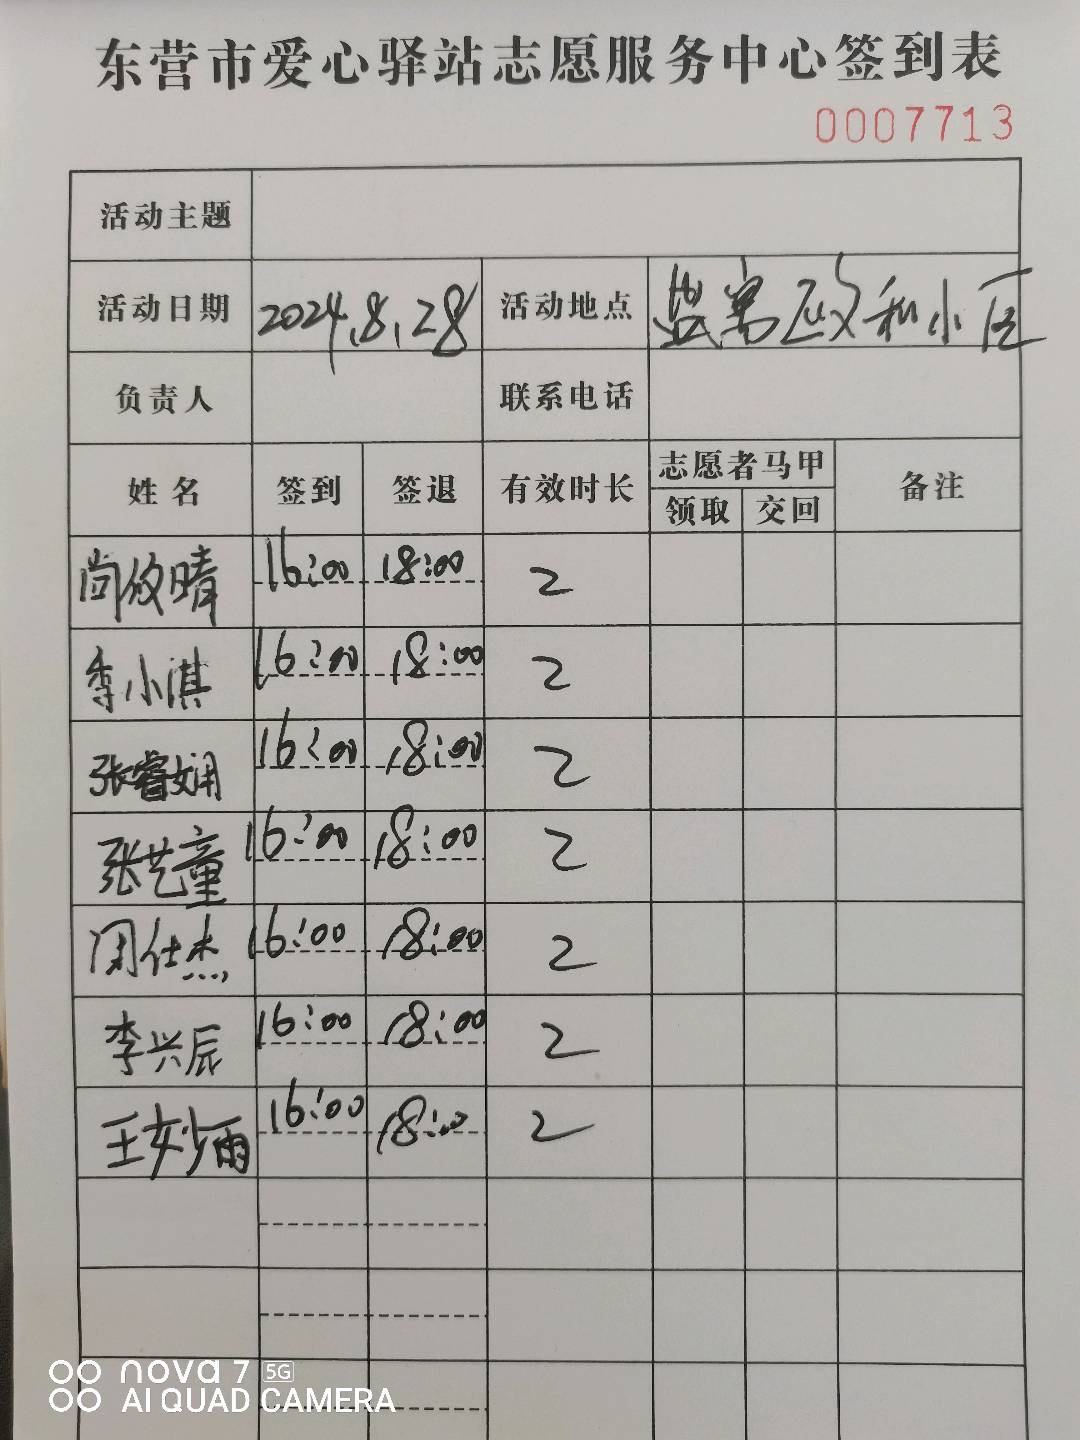 东营市爱心驿站志愿服务中心签到表
0007713
活动主题
活动日期 2024.8.28 活动地点 和小区
负责人 联系电话
姓名 签到 签退 有效时长 志愿者马甲 备注
领取 交回
尚攸晴 16:00 18:00 2
李小淇 16:00 18:00 2
张睿娴 16:00 18:00 2
张艺童 16:00 18:00 2
闵仕杰 16:00 18:00 2
李兴辰 16:00 18:00 2
王妙雨 16:00 18:00 2
nova 7 5G
AI QUAD CAMERA